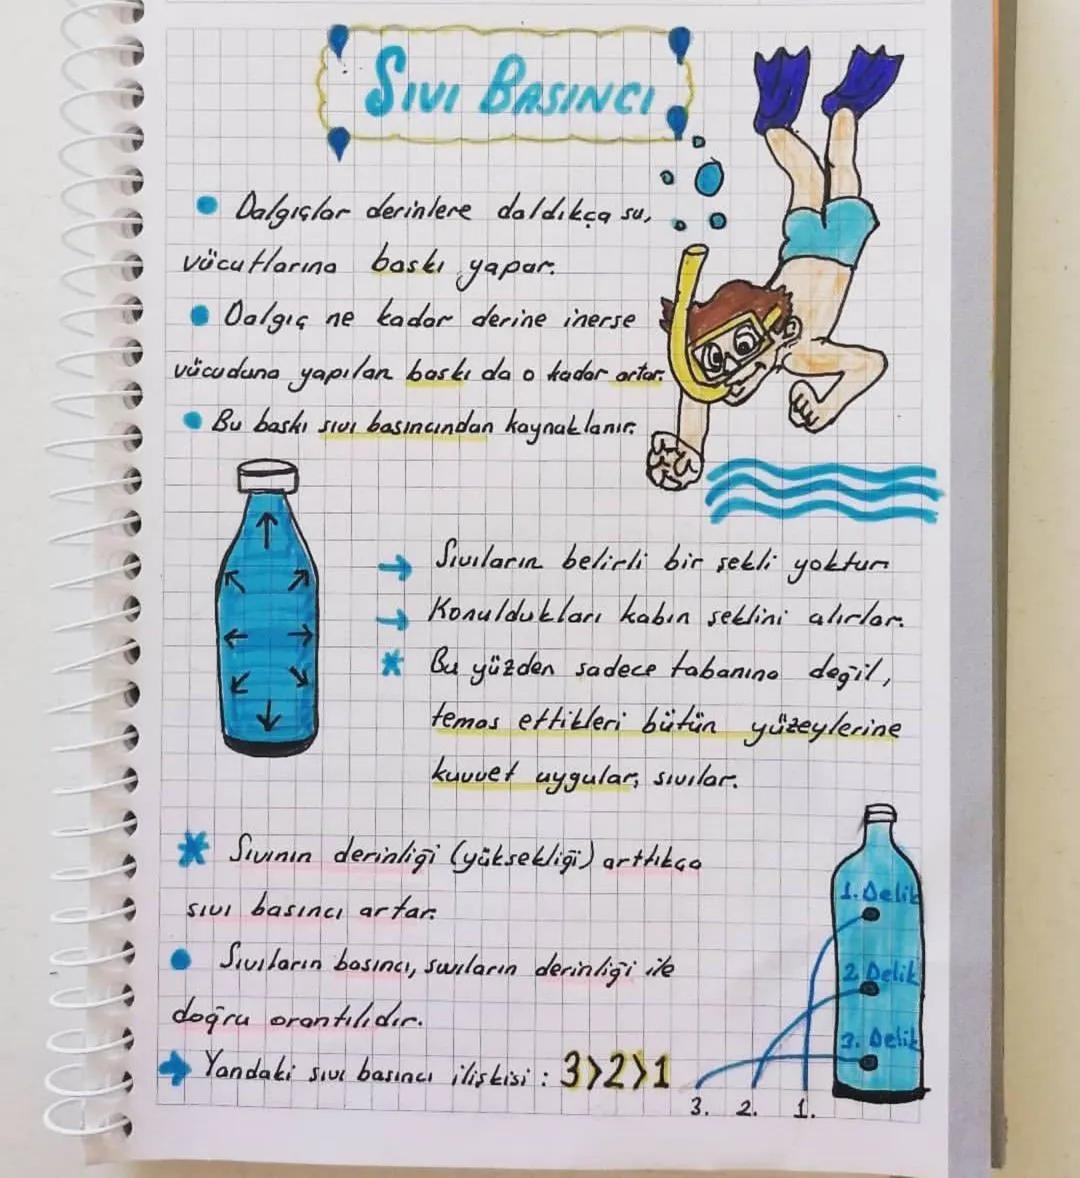 SIVI BASINCI
Dalgıçlar derinlere daldıkça su,
vücutlarına baskı yapar.
Dalgıç ne kadar derine inerse
vücuduna yapılan baskı da o kadar artar.
Bu baskı sıvı basıncından kaynaklanır.
→ Sıvıların belirli bir şekli yoktur
→ Konuldukları kabın şeklini alırlar.
* Bu yüzden sadece tabanına değil,
temas ettikleri bütün yüzeylerine
kuvvet uygular, sıvılar.
* Sıvının derinliği (yüksekliği) arttıkça
sıvı basıncı artar.
Sıvıların basıncı, sıvıların derinliği ile
doğru orantılıdır.
→ Yandaki sıvı basıncı ilişkisi : 3>2>1
1. Delik
2. Delik
3. Delik
3. 2. 1.